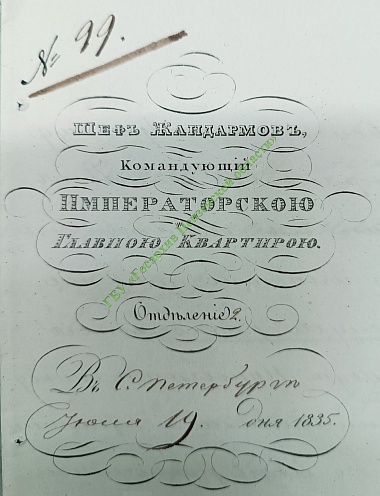 № 99.
Шефъ Жандармовъ,
Командующій
Императорскою
Главною Квартирою.
Отдѣленіе 2.
Въ С. Петербургѣ
Июля 19. дня 1835.
ГБУ «Госархив области»